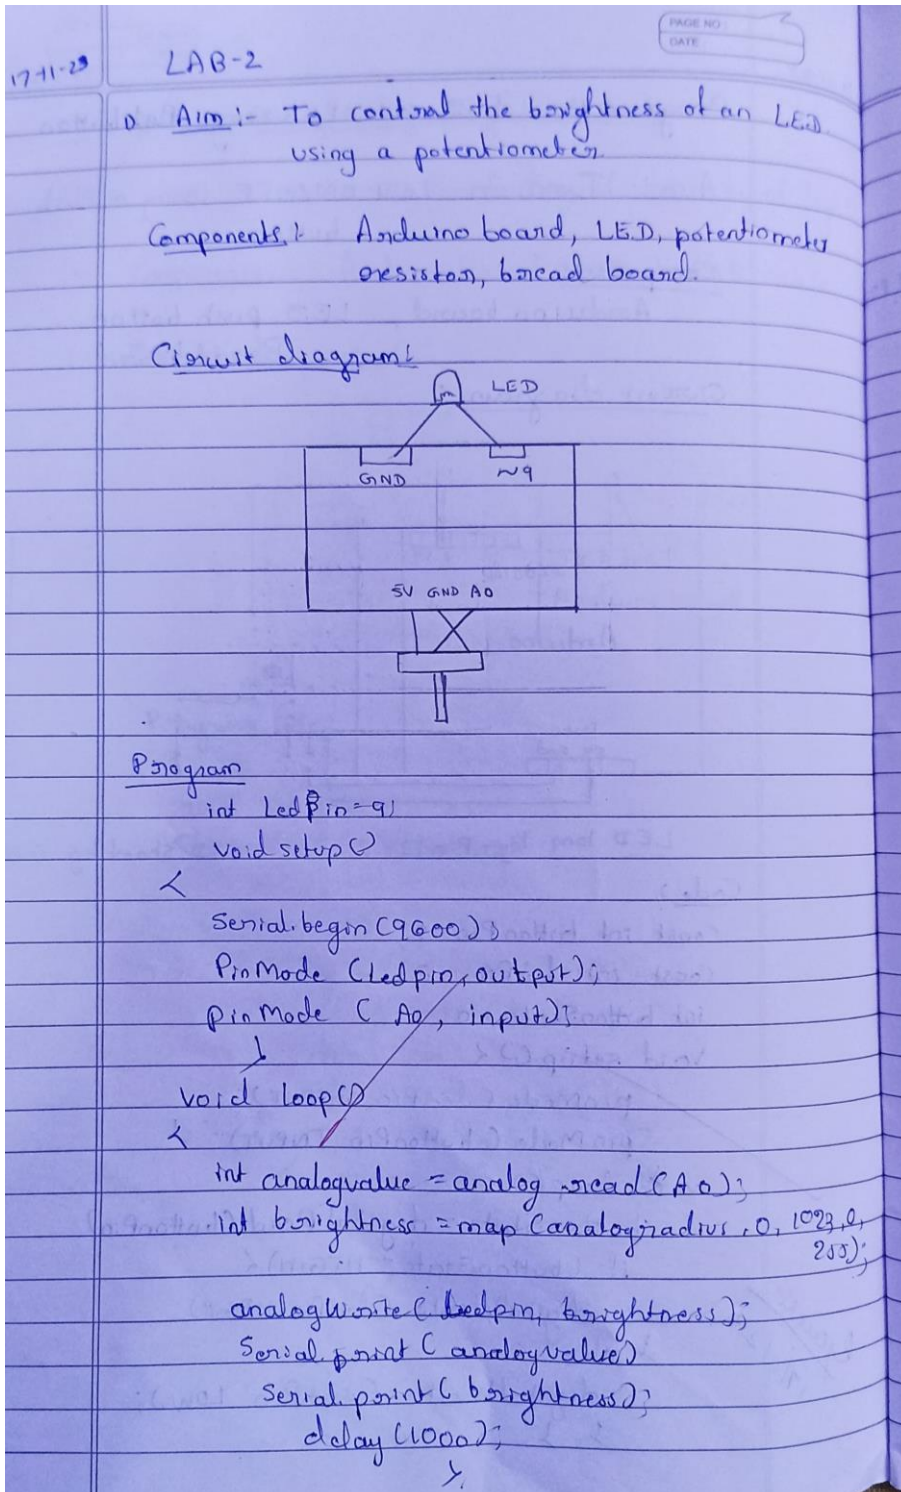 PAGE NO
DATE
17-11-23
LAB-2
1) Aim :- To control the brightness of an LED
using a potentiometer
Components :- Arduino board, LED, potentiometer
resistor, bread board.
Circuit diagram:
LED
GND ~9
5V GND A0
Program
int LedPin=9;
void setup()
{
Serial.begin(9600);
PinMode (Ledpin, output);
pinMode ( A0, input);
}
void loop()
{
int analogvalue = analog read(A0);
int brightness = map (analogradius, 0, 1023, 0,
255);
analogWrite( Ledpin, brightness);
Serial.print ( analogvalue)
Serial.print ( brightness);
delay (1000);
}